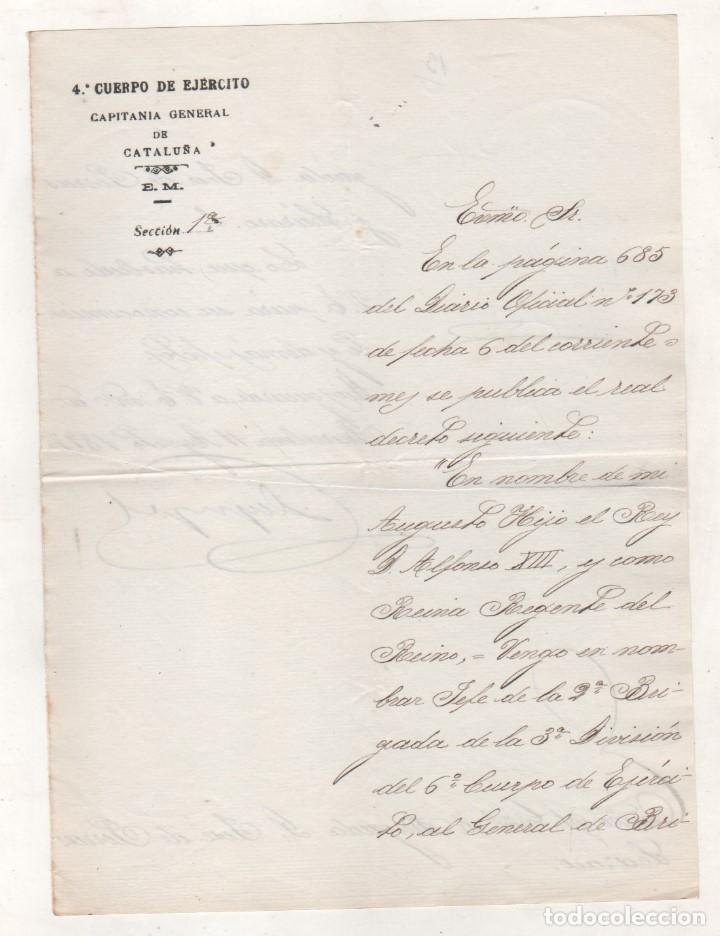 4.º CUERPO DE EJÉRCITO
CAPITANIA GENERAL
DE
CATALUÑA
E. M.
Sección 1ª
Exmo. Sr.
En la página 685
del Diario Oficial nº 173
de fecha 6 del corriente =
mes se publica el real
decreto siguiente:
"En nombre de mi
Augusto Hijo el Rey
D. Alfonso XIII, y como
Reina Regente del
Reino, = Vengo en nom-
brar Jefe de la 2ª Bri-
gada de la 3ª División
del 6º Cuerpo de Ejérci-
to, al General de Bri-
todocoleccion